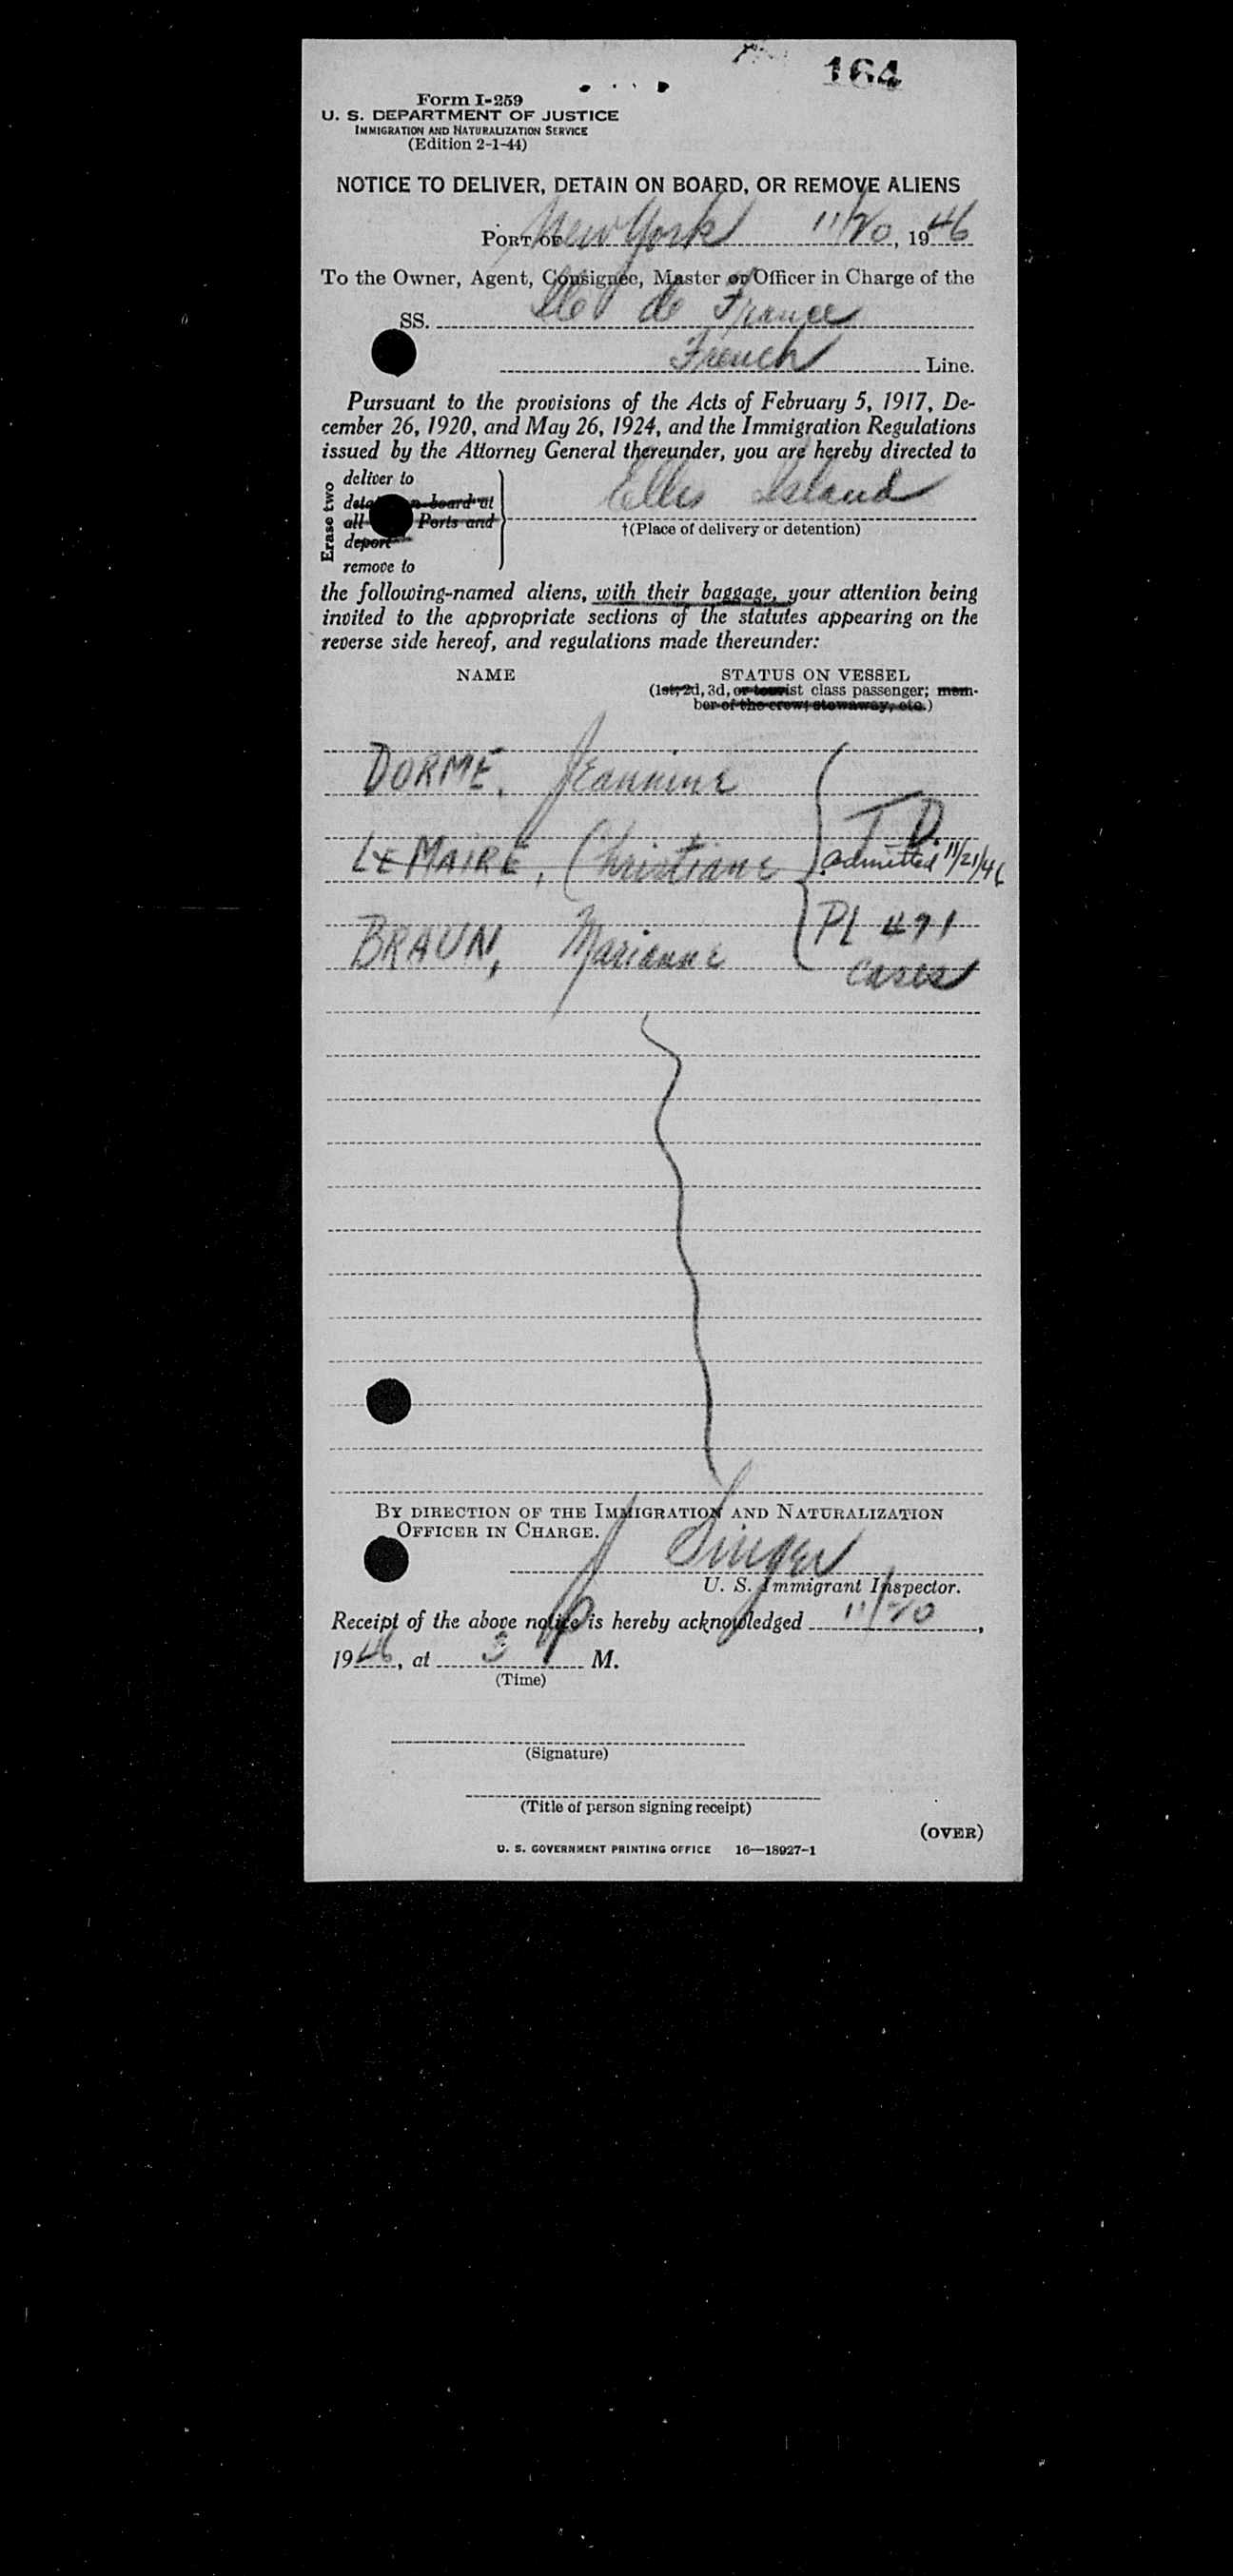 164
Form I-259
U. S. DEPARTMENT OF JUSTICE
IMMIGRATION AND NATURALIZATION SERVICE
(Edition 2-1-44)
NOTICE TO DELIVER, DETAIN ON BOARD, OR REMOVE ALIENS
PORT OF New York 11/20, 1946
To the Owner, Agent, Consignee, Master or Officer in Charge of the
SS. Ile de France
French Line.
Pursuant to the provisions of the Acts of February 5, 1917, De-
cember 26, 1920, and May 26, 1924, and the Immigration Regulations
issued by the Attorney General thereunder, you are hereby directed to
Erase two
deliver to
board at
all Ports and
deport
remove to
Ellis Island
†(Place of delivery or detention)
the following-named aliens, with their baggage, your attention being
invited to the appropriate sections of the statutes appearing on the
reverse side hereof, and regulations made thereunder:
NAME STATUS ON VESSEL
(1st, 2d, 3d, or tourist class passenger; mem-
ber of the crew; stowaway, etc.)
DORMÉ, Jeannine
T D.
LEMAIRE, Christiane admitted 11/21/46
PL 471
BRAUN, Marianne
cases
BY DIRECTION OF THE IMMIGRATION AND NATURALIZATION
OFFICER IN CHARGE.
J Singer
U. S. Immigrant Inspector.
Receipt of the above notice is hereby acknowledged 11/20,
1946, at 3 P M.
(Time)
(Signature)
(Title of person signing receipt)
(OVER)
U. S. GOVERNMENT PRINTING OFFICE 16—18927-1